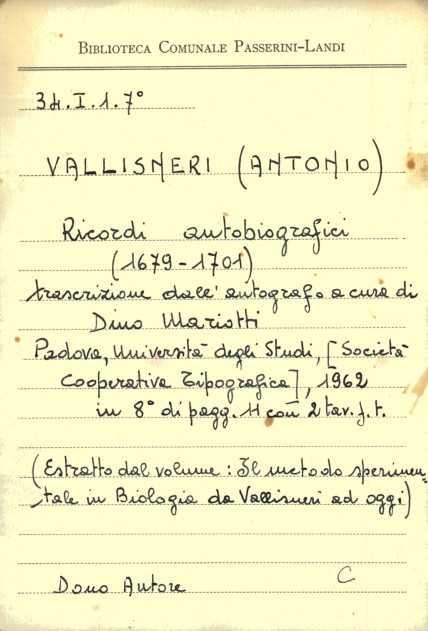 BIBLIOTECA COMUNALE PASSERINI-LANDI
34.I.1.7°
VALLISNERI (ANTONIO)
Ricordi autobiografici
(1679-1701)
trascrizione dall'autografo a cura di
Dino Mariotti
Padova, Università degli Studi, [Società
Cooperativa Tipografica], 1962
in 8° di pagg. 11 con 2 tav. f. t.
(Estratto dal volume: Il metodo sperimen-
tale in Biologia da Vallisneri ad oggi)
Dono Autore C